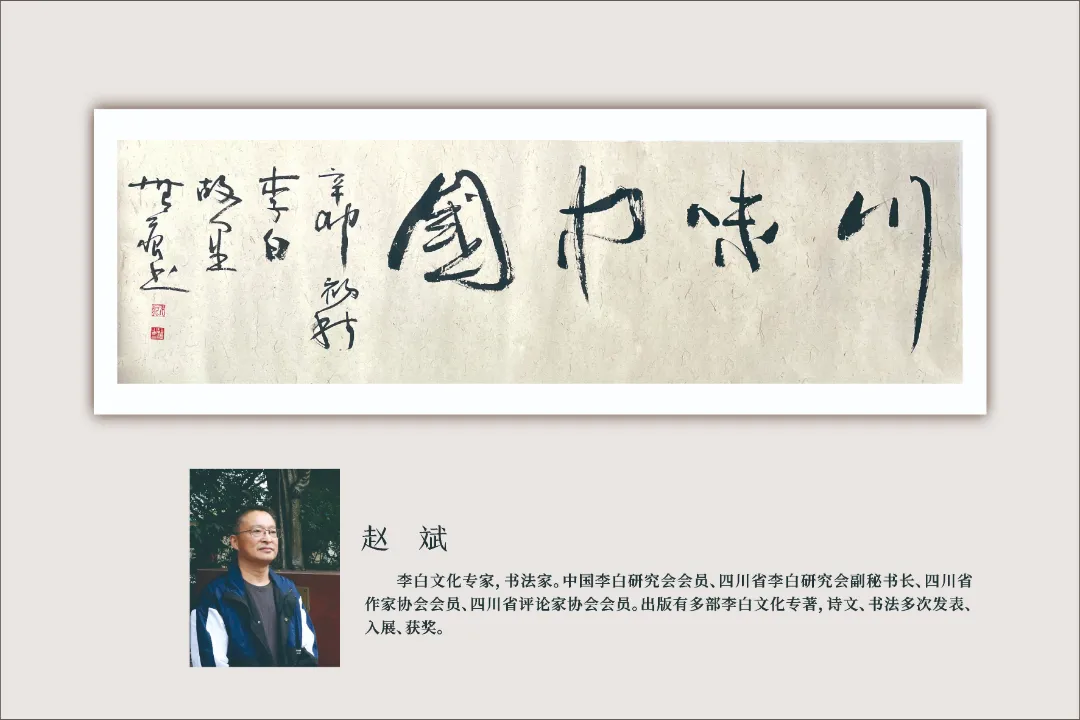 川味中國
辛卯初秋
李白
故里
赵 斌
李白文化专家，书法家。中国李白研究会会员、四川省李白研究会副秘书长、四川省
作家协会会员、四川省评论家协会会员。出版有多部李白文化专著，诗文、书法多次发表、
入展、获奖。